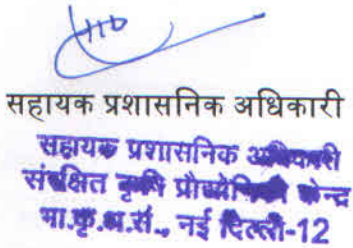 सहायक प्रशासनिक अधिकारी
सहायक प्रशासनिक अधिकारी
संरक्षित कृषि प्रौद्योगिकी केन्द्र
भा.कृ.अ.सं., नई दिल्ली-12